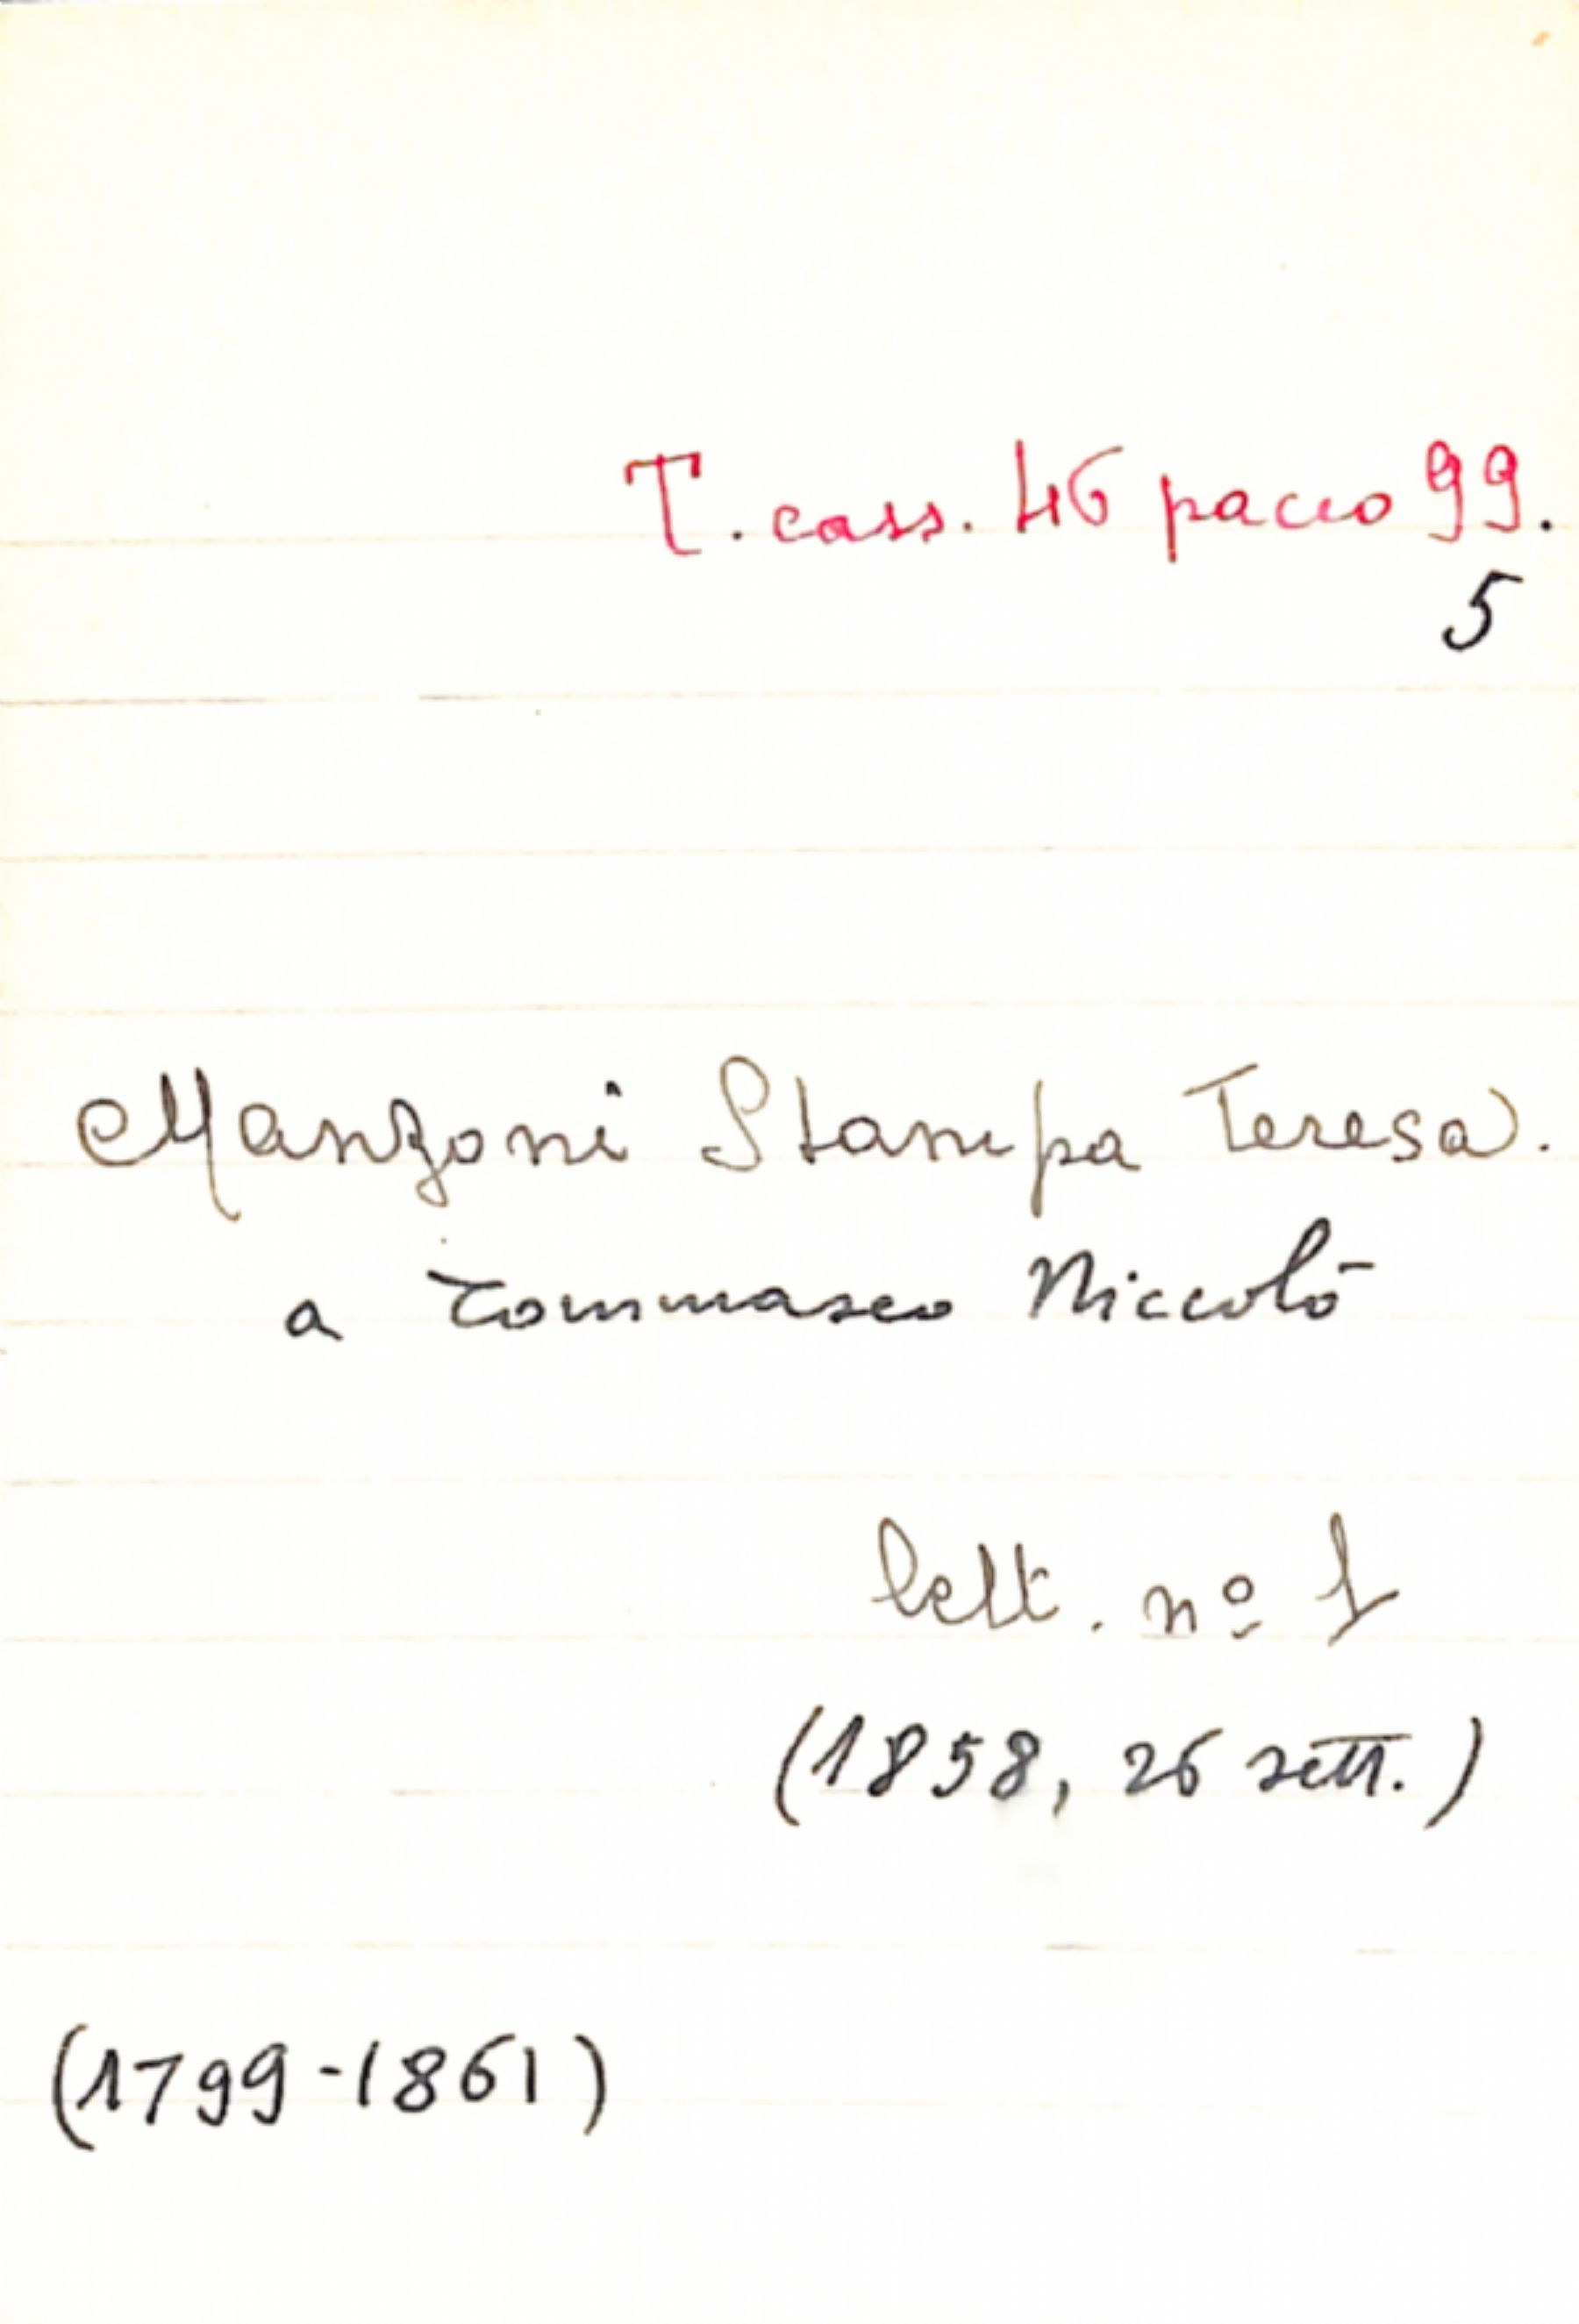 T. cass. 46 pacco 99.
5
Manzoni Stampa Teresa.
a Tommaseo Niccolò
lett. nº 1
(1858, 26 sett.)
(1799-1861)